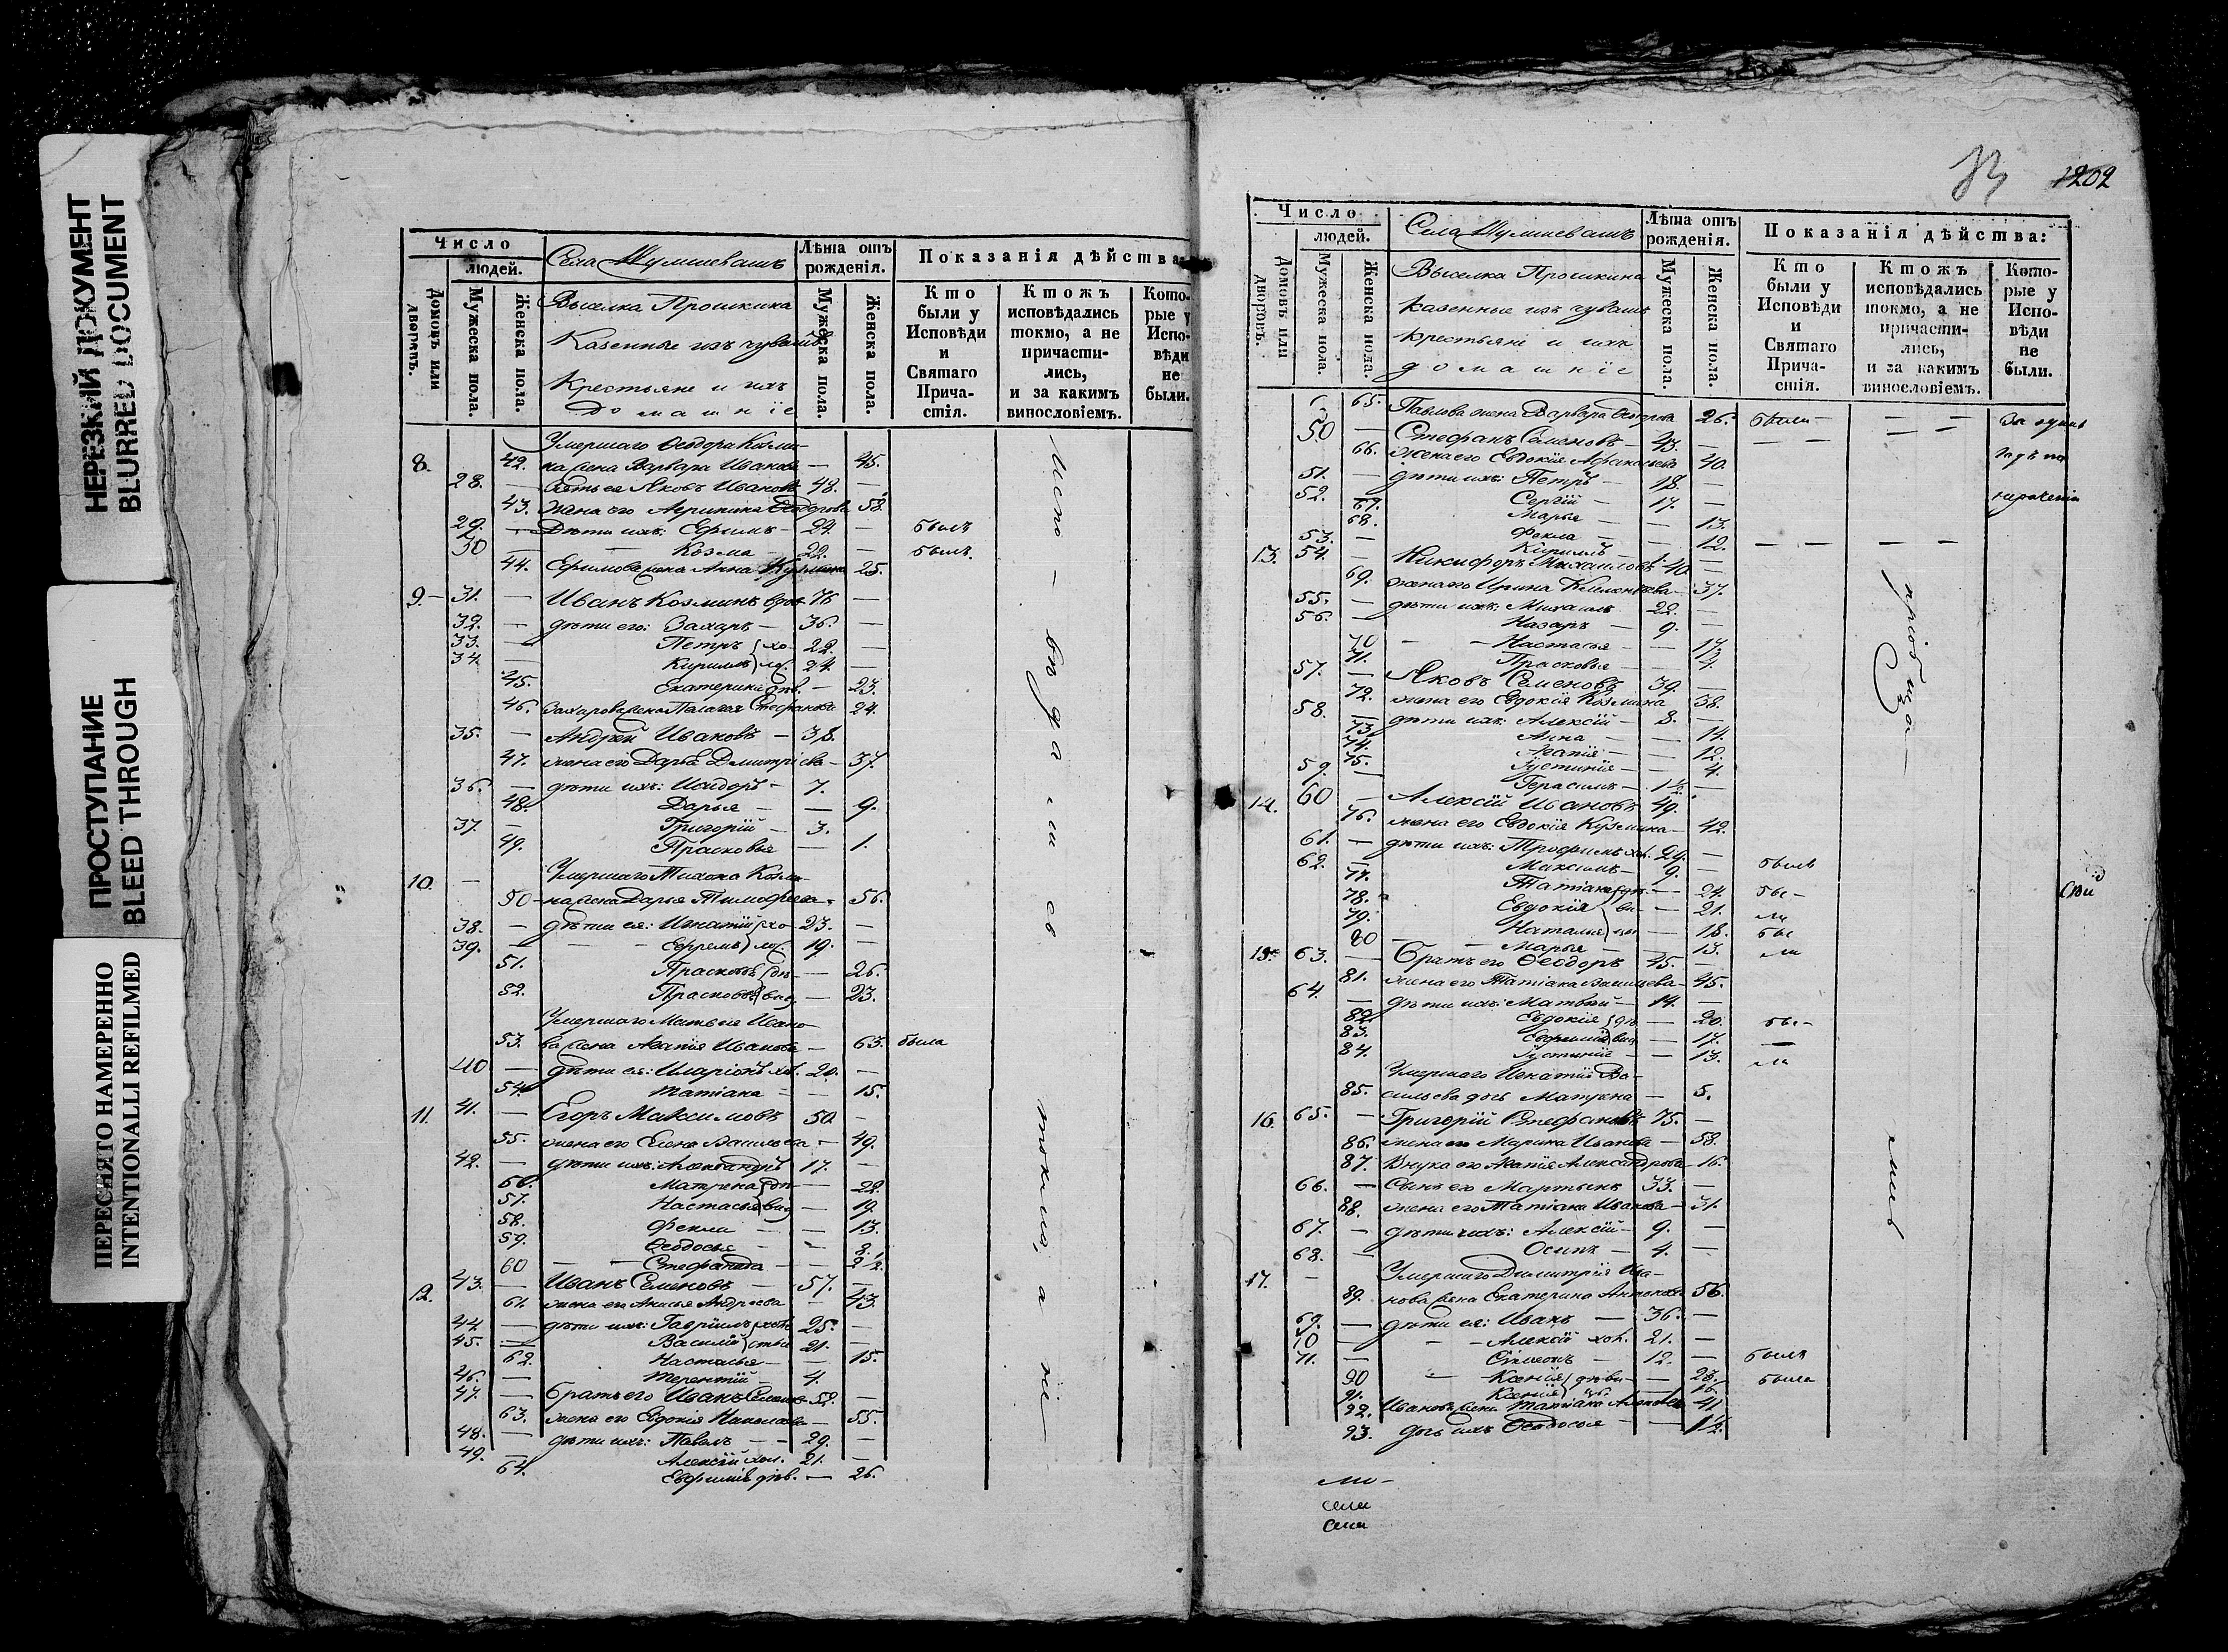 НЕРЕЗКИЙ ДОКУМЕНТ
BLURRED DOCUMENT
ПРОСТУПАНИЕ
BLEED THROUGH
ПЕРЕСНЯТО НАМЕРЕННО
INTENTIONALLI REFILMED
Число
людей.
Домовъ или дворовъ.
Мужеска пола.
Женска пола.
Села Шумшевашъ
Выселка Прошкина
Казенные изъ чувашъ
Крестьяне и ихъ
домашніе
Лѣта отъ рожденія.
Мужеска пола.
Женска пола.
Показанія дѣйства
Кто были у Исповѣди и Святаго Прича-стія.
Ктожъ исповѣдались токмо, а не причасти-лись, и за какимъ винословіемъ.
Кото-рые у Испо-вѣди не были.
Умершаго Ѳеодора Козми-
8. 42. на жена Варвара Иванова — 45.
28. — Зять ея Яковъ Ивановъ 48. —
43. Жена его Ѳеодорова 58.
29. — Дѣти ихъ: Ефимъ — 24. — былъ
30 — Козма — 22. — былъ.
44. Ефимова жена Анна Кузмина 25.
9. — 31. — Иванъ Козминъ вдов 76 —
32. — дѣти его: Захаръ — 36. —
33. — Петръ хо- 22. —
34. — Кириллъ лос. 24. —
45. Екатерина дѣв. — 23.
46. Захарова жена Пелагея Стефанова 24.
35. — Андрей Ивановъ — 38.
47. жена его Дарья Дмитріева — 37.
36. — дѣти ихъ: Исидоръ — 7.
48. Дарья — — 9.
37. — Григорій — 3.
49. Прасковья — 1.
10. — Умершаго Тихона Козми-
50 — на жена Дарья Тимофеева — 56.
38. — дѣти ея: Игнатій хо- 23. —
39. — Ефремъ лос. 19. —
51. Прасковья дѣ- — 26.
52. Прасковья виц — 23.
Умершаго Матвея Ивано-
53. ва жена Агапія Иванова — 63. была
40 — дѣти ея: Иларіонъ хол. 20. —
54. Татіана — 15.
11. 41. — Егоръ Максимовъ 50. —
55. жена его Елена Васильева — 49.
42. — дѣти ихъ: Александръ 17. —
56. Матрена дѣ- — 22.
57. Настасья виц — 19.
58. Фекла — — 13.
59. Ѳеодосья — — 8.
60 — Стефанида — — 2½
12. 43. — Иванъ Семеновъ — 57. —
61. жена его Анисья Андреева — 43.
44. — дѣти ихъ: Гавріилъ холо 25. —
45. — Василій стые 21. —
62. Настасья — — 15.
46. — Терентій — 4.
47. — братъ его Иванъ Семеновъ 52. —
63. жена его Евдокія Николаева — 55.
48. — дѣти ихъ: Павелъ — 29. —
49. — Алексій хол. 21. —
64. Евфимія дѣв. — 26.
Испо — вѣдались токмо, а не —
1202
Число
людей.
Домовъ или дворовъ.
Мужеска пола.
Женска пола.
Села Шумшевашъ
Выселка Прошкина
казенные изъ чувашъ
крестьяне и ихъ
домашніе
Лѣта отъ рожденія.
Мужеска пола.
Женска пола.
Показанія дѣйства:
Кто были у Исповѣди и Святаго Прича-стія.
Ктожъ исповѣдались токмо, а не причасти-лись, и за какимъ винословіемъ.
Кото-рые у Испо-вѣди не были.
65. Павлова жена Варвара Ѳеодорова 26. были —
50 — Стефанъ Семеновъ — 43. —
66. жена его Евдокія Афанасьева 40.
51. — дѣти ихъ: Петръ — 18. —
52. — Сергій — 17. —
67. Марья — — 13.
68. Фекла — — 12.
53. — Кириллъ —
13. 54. — Никифоръ Михаиловъ 40. —
69. жена его Ирина Климентьева — 37.
55. — дѣти ихъ: Михаилъ 22. —
56. — Назаръ — 9. —
70 — Настасья — — 17.
71. Прасковья — — 4.
57. — Яковъ Семеновъ 39. —
72. жена его Евдокія Козмина 38.
58. — дѣти ихъ: Алексій — 8. —
73. Анна — — 14.
74. Агапія — — 12.
75. Іустинія — — 4.
59. — Герасимъ — 1½ —
14. 60 — Алексій Ивановъ 49. —
76. жена его Евдокія Кузмина — 42.
61. — дѣти ихъ: Трофимъ хол. 29. —
62. — Максимъ — 9. — былъ
77. Татіана дѣ- — 24. бы —
78. Евдокія ви- — 21. ли
79. Наталія — 18. бы
80 — Марья — — 13. ли
15. 63. — Братъ его Ѳеодоръ 45. —
81. жена его Татіана Васильева — 45.
64. — дѣти ихъ: Матвей — 14. —
82. Евдокія дѣ — 20. бы —
83. Евфимія виц — 17. —
84. Іустинія — — 13. ли
Умершаго Игнатія Ва-
85. сильева дочь Матрена — 5.
16. 65. — Григорій Стефановъ 75. —
86. жена его Марина Иванова — 58.
87. Внука его Агапія Александрова — 16.
66. — Сынъ его Мартынъ 33. —
88. жена его Татіана Иванова — 31.
67. — дѣти ихъ: Алексій — 9. —
68. — Осипъ — 4. —
17. — Умершаго Димитрія Ива-
89. нова жена Екатерина Антонова 56.
69. — дѣти ея: Иванъ — 36. —
70 — Алексій хол. 21. —
71. — Симеонъ — 12. — былъ
90 — Ксенія дѣви- — 23. была
91. Ксенія — 16.
92. Иванова жена Татіана 41
93. дочь ихъ Ѳеодосья — — 1½.
пріобща — лись